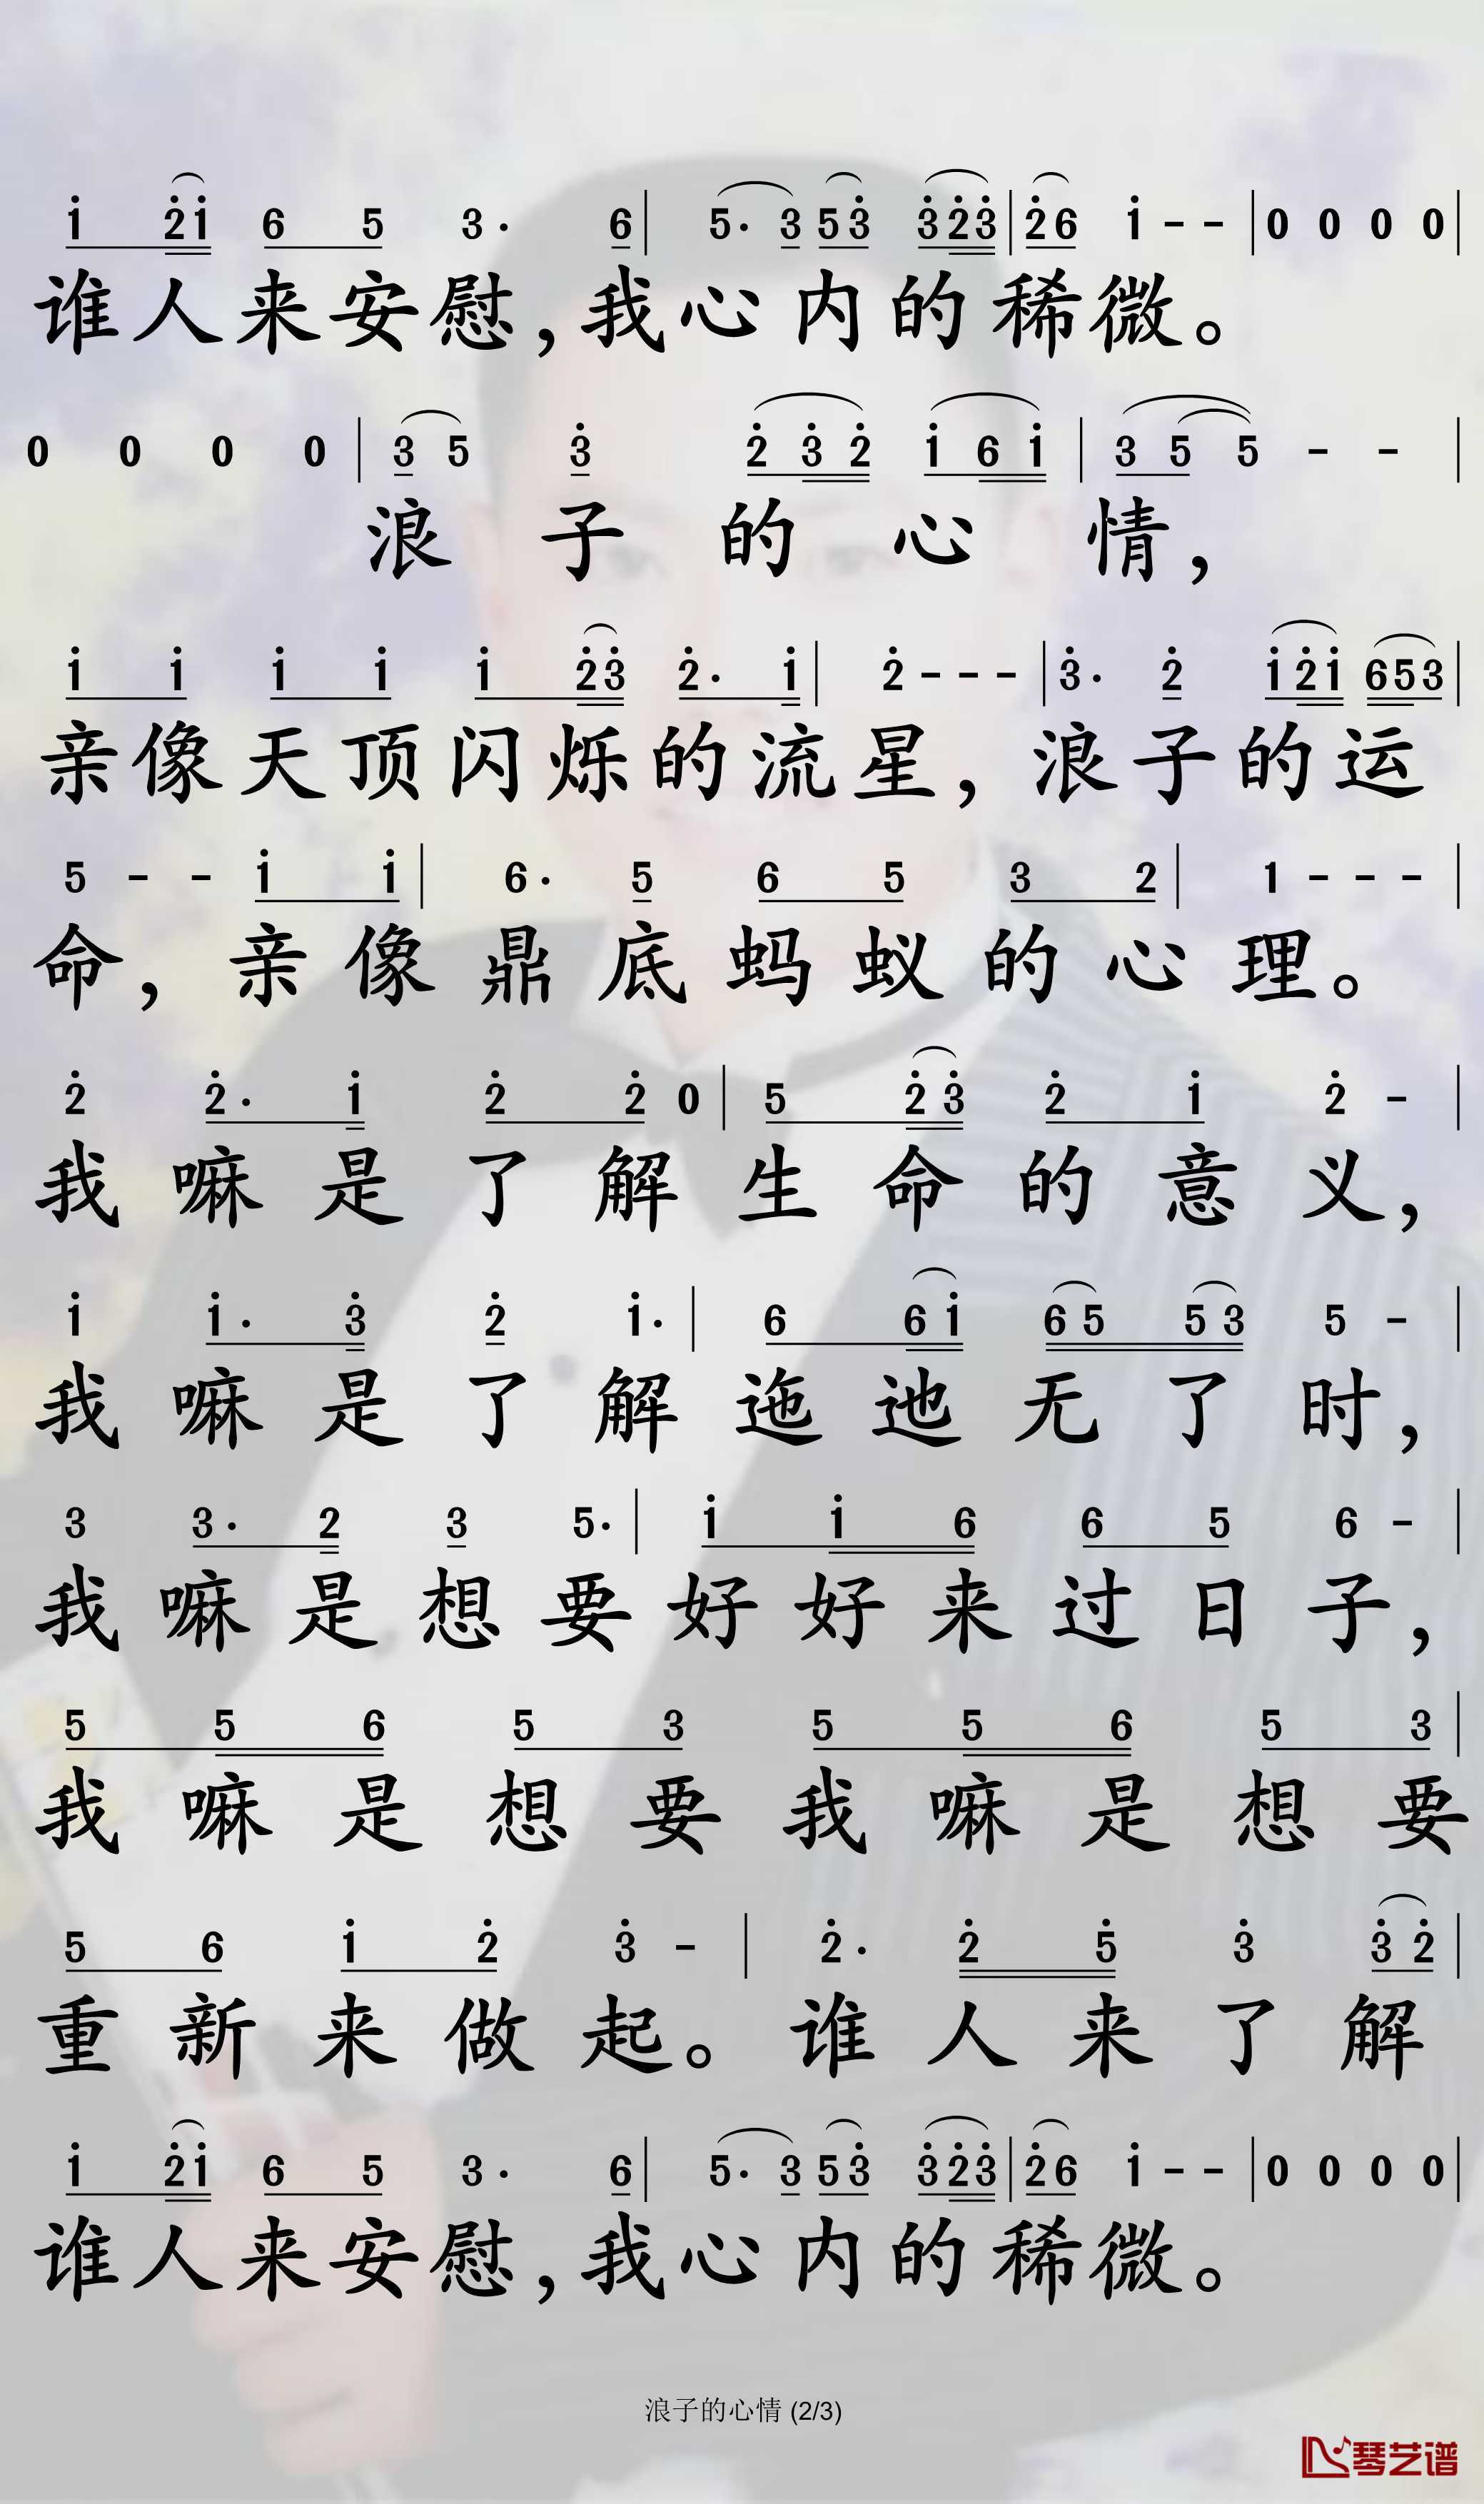 i 2̇i̇ 6 5 3· 6 | 5· 3 53̇ 3̇2̇3̇ | 2̇6 i̇ - - | 0 0 0 0 |
谁人来安慰,我心内的稀微。
0 0 0 0 | 3 5 3̇ 2̇ 3̇ 2̇ i̇ 6 i̇ | 3 5 5 - - |
浪子的心情,
i̇ i̇ i̇ i̇ i̇ 2̇3̇ 2̇· i̇ | 2̇ - - - | 3̇· 2̇ i̇2̇i̇ 653 |
亲像天顶闪烁的流星,浪子的运
5 - - i̇ i̇ | 6· 5 6 5 3 2 | 1 - - - |
命,亲像鼎底蚂蚁的心理。
2̇ 2̇· i̇ 2̇ 2̇ 0 | 5 2̇ 3̇ 2̇ i̇ 2̇ - |
我嘛是了解生命的意义,
i̇ i̇· 3̇ 2̇ i̇· | 6 6 i̇ 6 5 5 3 5 - |
我嘛是了解迤迆无了时,
3 3· 2 3 5· | i̇ i̇ 6 6 5 6 - |
我嘛是想要好好来过日子,
5 5 6 5 3 5 5 6 5 3 |
我嘛是想要 我嘛是想要
5 6 i̇ 2̇ 3̇ - | 2̇· 2̇ 5̇ 3̇ 3̇ 2̇ |
重新来做起。谁人来了解
i̇ 2̇i̇ 6 5 3· 6 | 5· 3 53̇ 3̇2̇3̇ | 2̇6 i̇ - - | 0 0 0 0 |
谁人来安慰,我心内的稀微。
浪子的心情 (2/3)
琴艺谱